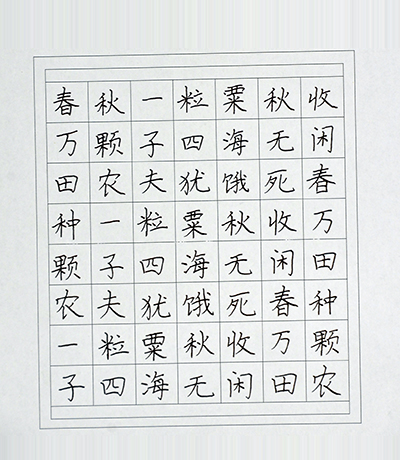 春秋一粒粟秋收
万颗子四海无闲
田农夫犹饿死春
种一粒粟秋收万
颗子四海无闲田
农夫犹饿死春种
一粒粟秋收万颗
子四海无闲田农